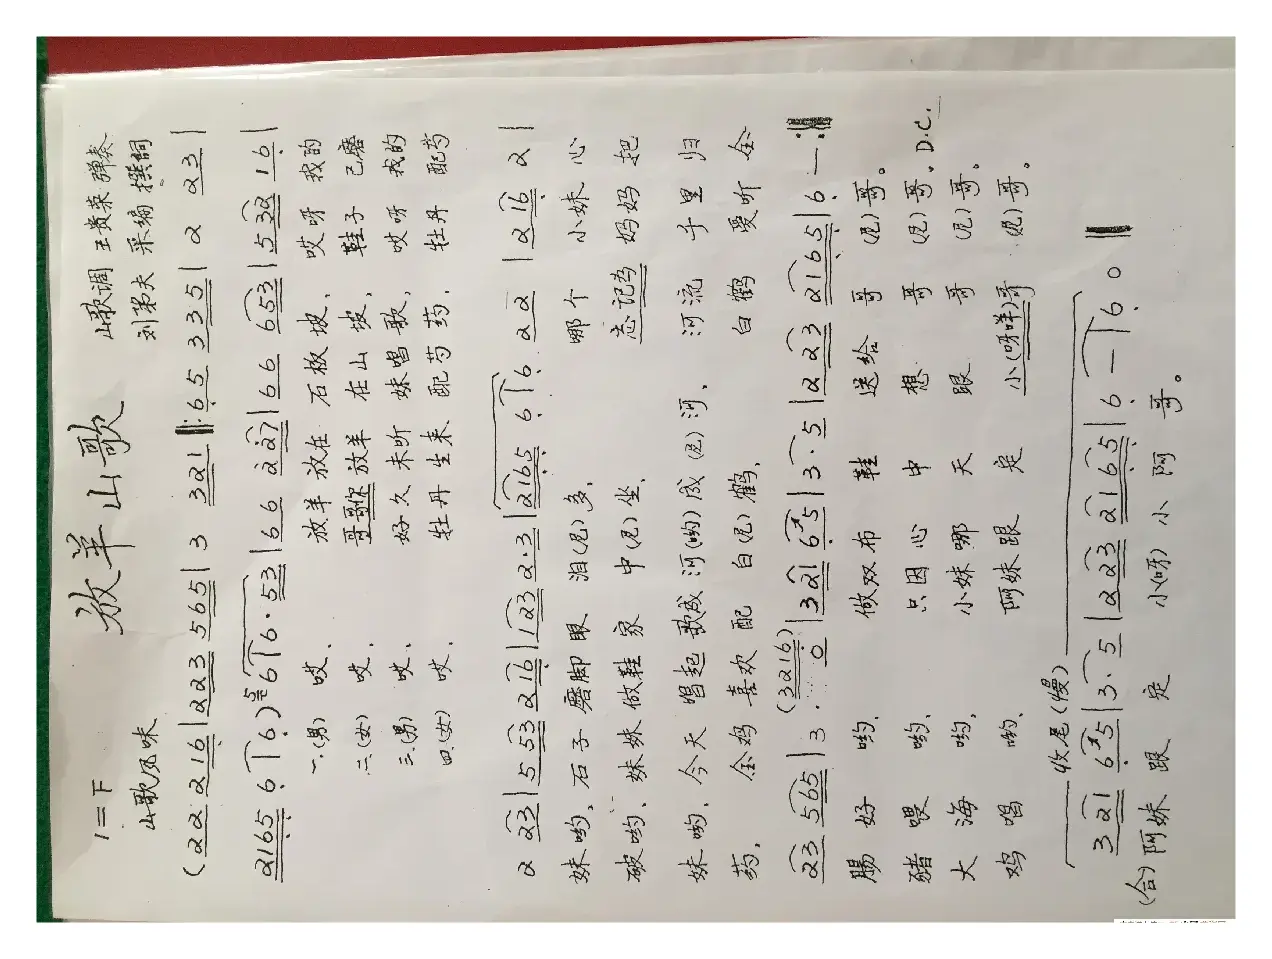 放羊山歌
1=F
山歌风味
山歌调 王贵荣 弹奏
刘弟夫 采编 撰词
(22 216|223 565|3 321‖:65 335|2 23|
2165 6|6)6|6·53|66 227|66 653|532 16|
一.(男) 哎, 放羊 放在 石板 坡, 哎呀 我的
二.(女) 哎, 哥哥你 放羊 在山 坡, 鞋子 已磨
三.(男) 哎, 好久 未听 妹唱 歌, 哎呀 我的
四.(女) 哎, 牡丹 生来 配芍 药, 牡丹 配芍
2 23|5 53 216|123 2·3|2165 6|6 22|216 2|
妹哟, 石子 磨脚 眼 泪(尼)多, 哪个 小妹 心
破哟, 妹妹 做鞋 家 中(尼)坐, 忘记为 妈妈 把
妹哟, 今天 唱起 歌成 河(哟)成(尼)河, 河流 千里 归
药, 金鸡 喜欢 配 白(尼)鹤, 白鹤 爱听 金
23 565|3·(3216) 0|321 65|3·5|223 2165|6 —:‖
肠 好 哟, 做双 布 鞋 送给 哥 (尼)哥。
猪 喂 哟, 只因 心 中 想 哥 (尼)哥。D.C.
大 海 哟, 小妹 哪 天 跟 哥 (尼)哥。
鸡 唱 哟, 阿妹 跟 定 小(呀咩)哥 (尼)哥。
收尾(慢)
321 65|3·5|223 2165|6 —|6 0‖
(合)阿妹 跟 定 小(呀) 小 阿 哥。